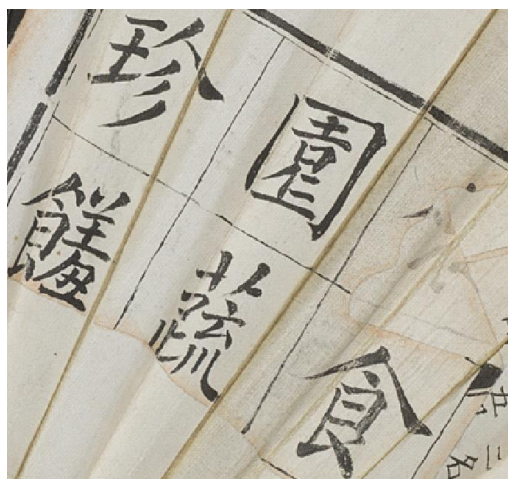 食
園蔬
珍饈